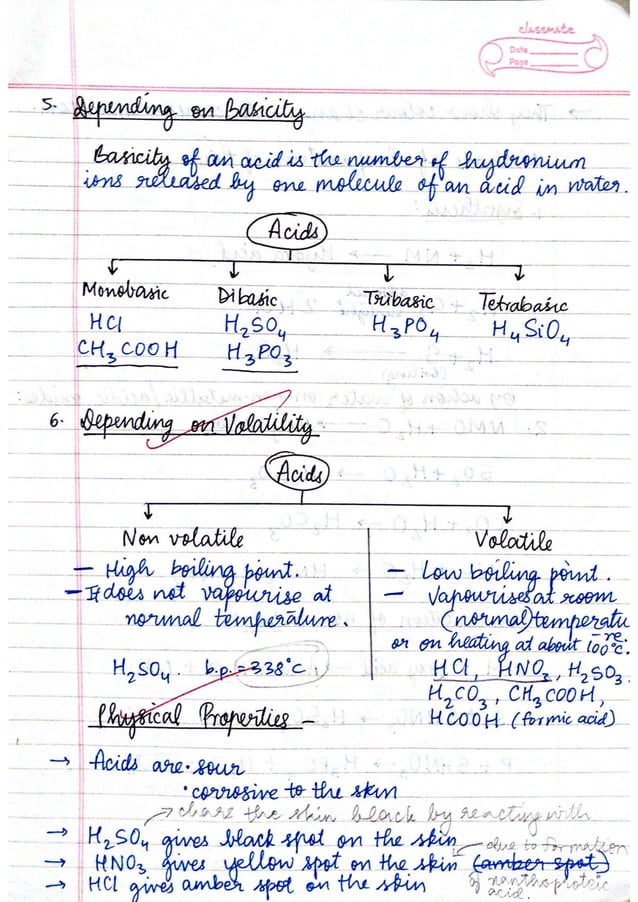 classmate
Date
Page
5. Depending on Basicity
Basicity of an acid is the number of hydronium
ions released by one molecule of an acid in water.
Acids
Monobasic Dibasic Tribasic Tetrabasic
HCl H₂SO₄ H₃PO₄ H₄SiO₄
CH₃COOH H₃PO₃
6. Depending on Volatility
Acids
Non volatile Volatile
— High boiling point. — Low boiling point.
— It does not vapourise at — Vapourises at room
normal temperature. (normal) temperature
or on heating at about 100°C.
H₂SO₄. b.p. = 338°C. HCl, HNO₃, H₂SO₃
H₂CO₃, CH₃COOH,
Physical Properties – HCOOH (formic acid)
→ Acids are • sour
• corrosive to the skin
→ chars the skin black by reacting with
→ H₂SO₄ gives black spot on the skin
→ HNO₃ gives yellow spot on the skin (amber spot) due to formation of xanthoproteic acid.
→ HCl gives amber spot on the skin